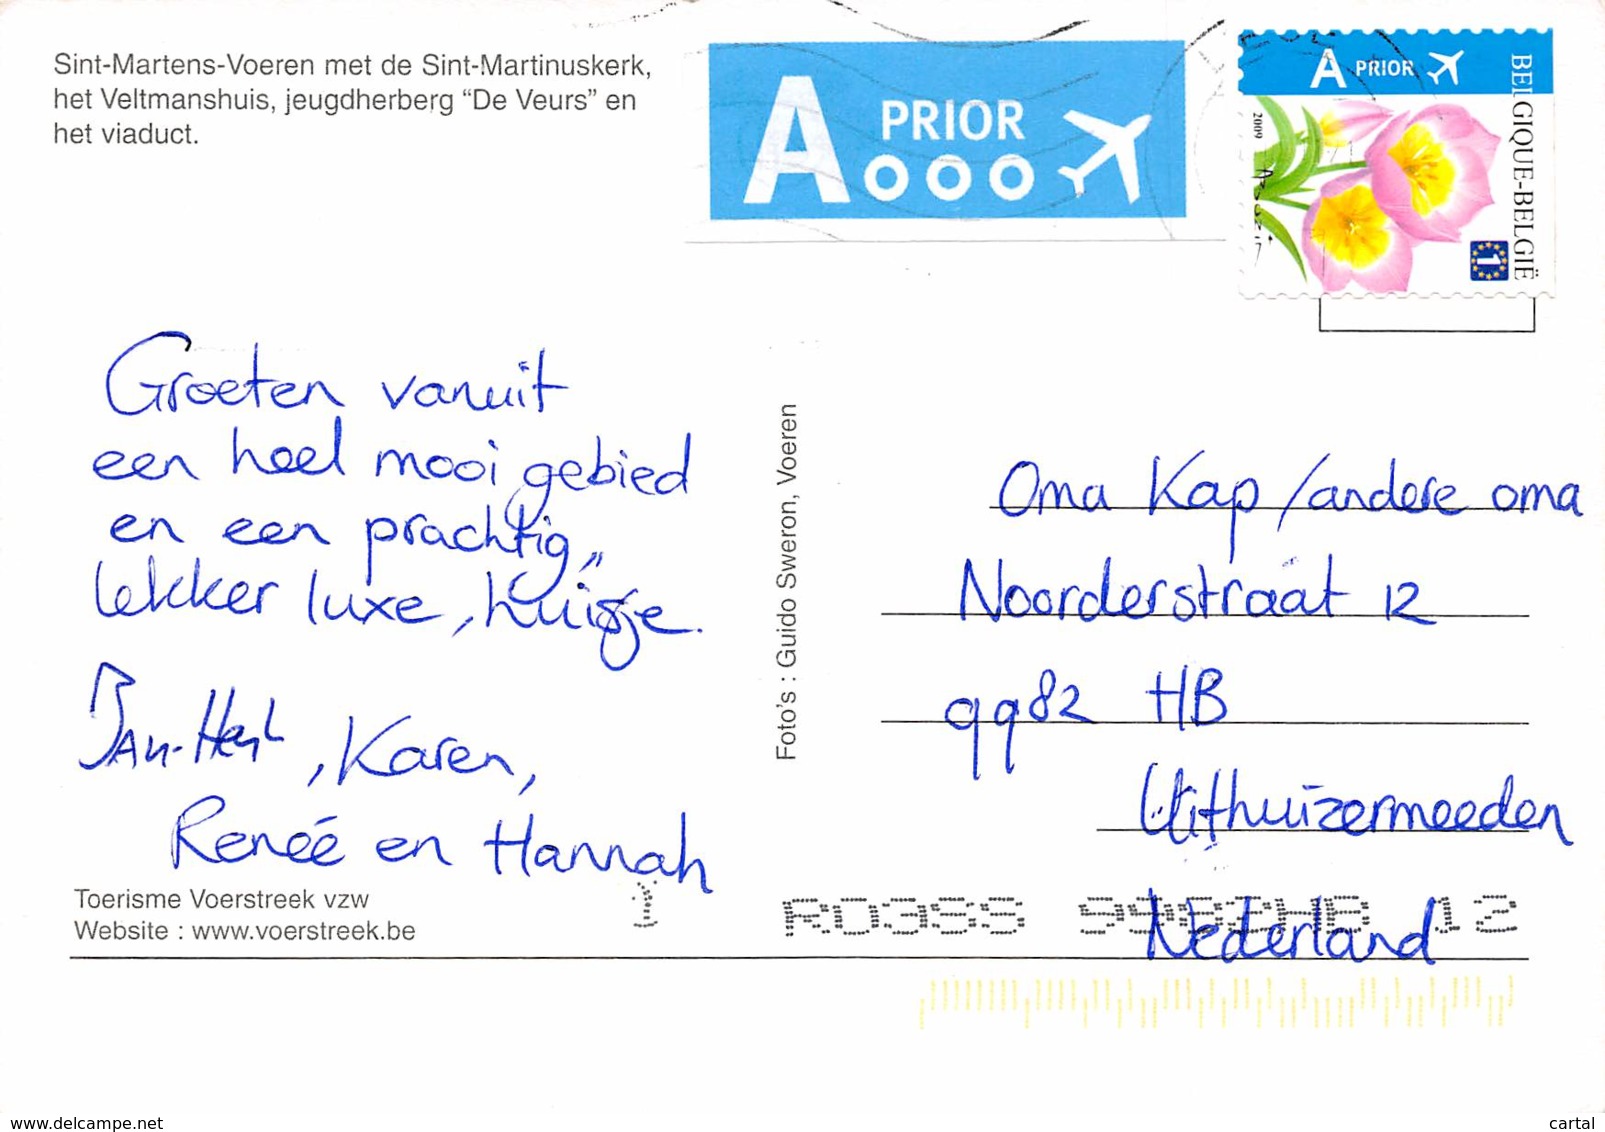 Sint-Martens-Voeren met de Sint-Martinuskerk,
het Veltmanshuis, jeugdherberg “De Veurs” en
het viaduct.
A PRIOR
A PRIOR
BELGIQUE-BELGIË
2009
1
Groeten vanuit
een heel mooi gebied
en een prachtig,
lekker luxe, huisje.
Jan-Henk, Karen,
Reneé en Hannah
Toerisme Voerstreek vzw
Website : www.voerstreek.be
Foto's : Guido Sweron, Voeren
Oma Kap / andere oma
Noorderstraat 12
9982 HB
Uithuizermeeden
Nederland
9982HB 12
www.delcampe.net
cartal